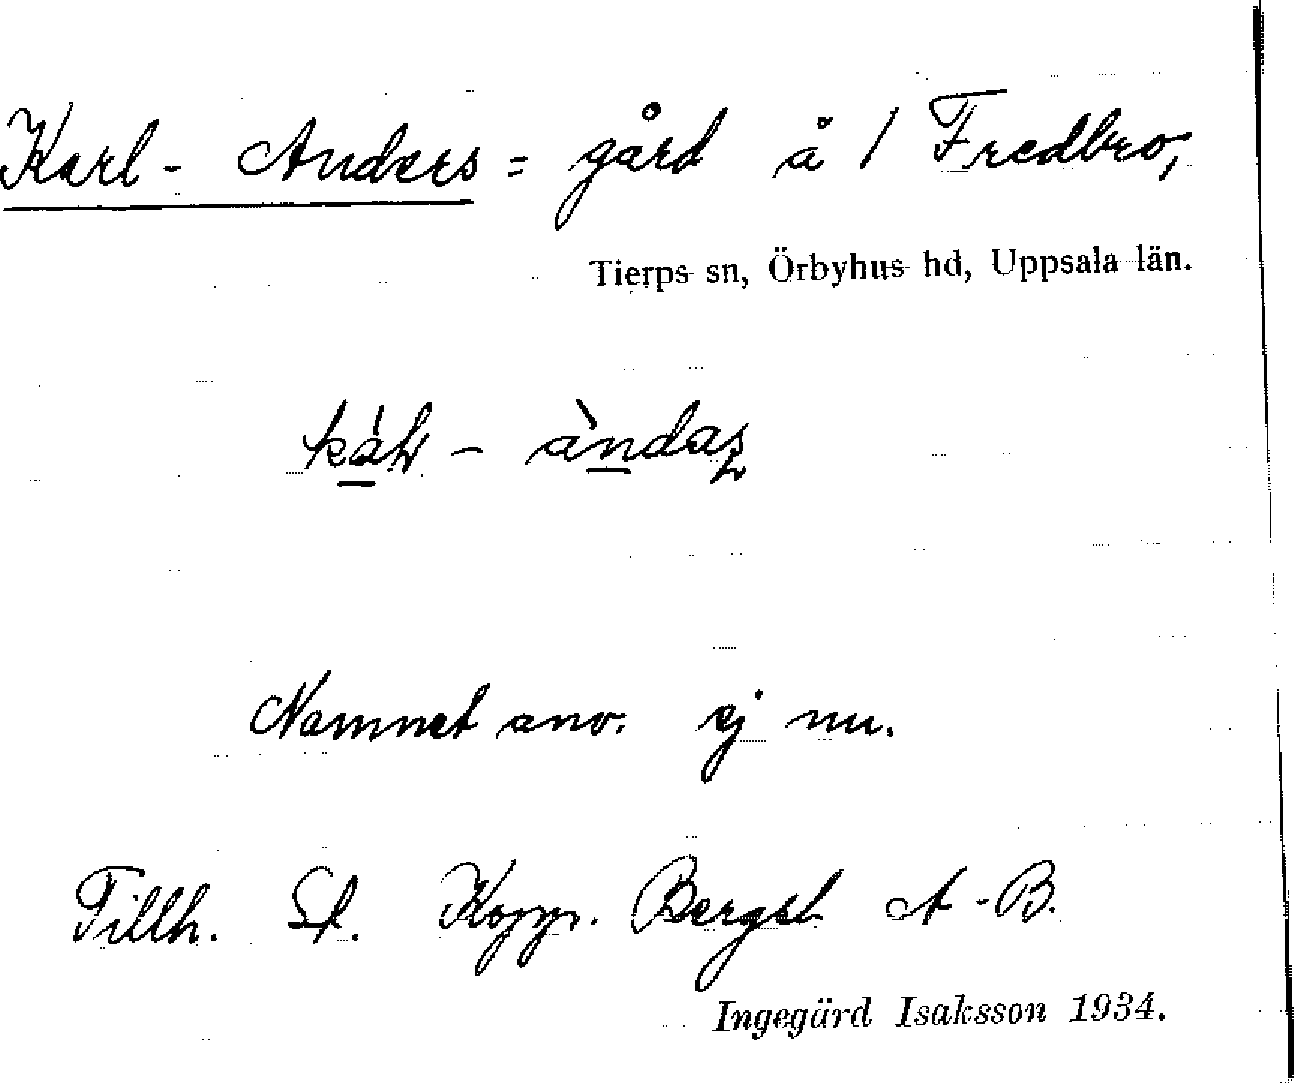 Karl-Anders=gård å 1 Fredbro,
Tierps sn, Örbyhus hd, Uppsala län.
Namnet anv. ej nu.
Tillh. St. Kopp. Bergsl. A-B.
Ingegärd Isaksson 1934.